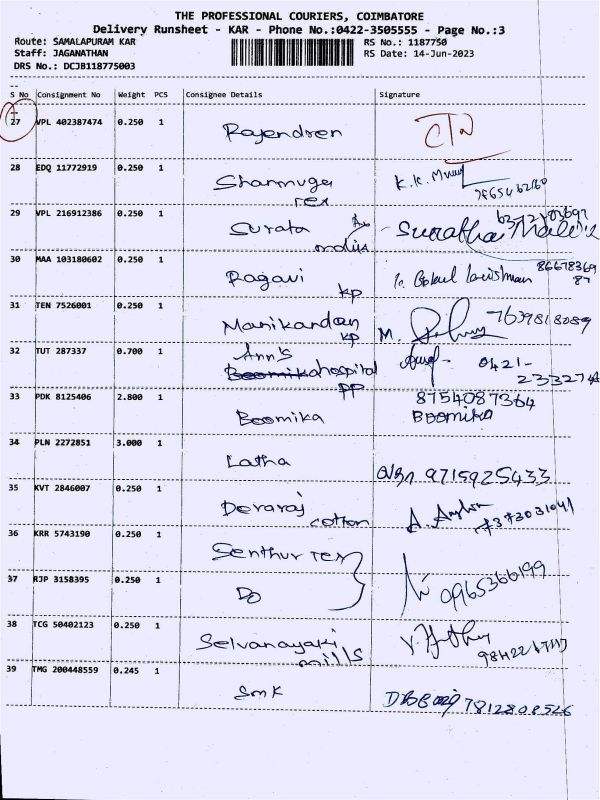 THE PROFESSIONAL COURIERS, COIMBATORE
Delivery Runsheet - KAR - Phone No.:0422-3505555 - Page No.:3
Route: SAMALAPURAM KAR RS No.: 1187750
Staff: JAGANATHAN RS Date: 14-Jun-2023
DRS No.: DCJB118775003
S No Consignment No Weight PCS Consignee Details Signature
27 VPL 402387474 0.250 1 Rajendren
28 EDQ 11772919 0.250 1 Shanmuga K.K.
tex
29 VPL 216912386 0.250 1 Surata
30 MAA 103180602 0.250 1 Ragavi 86678369
KP 87
31 TEN 7526001 0.250 1 Manikandan M. 7639818089
KP
32 TUT 287337 0.700 1 Ann's 0421-
hospital 2333274
PP
33 PDK 8125406 2.800 1 Boomika 8754087364
Boomika
34 PLN 2272851 3.000 1 Latha 9715925433
35 KVT 2846007 0.250 1 Devaraj
cotton 7373031041
36 KRR 5743190 0.250 1 Senthur tex
37 RJP 3158395 0.250 1 Do 0965366199
38 TCG 50402123 0.250 1 Selvanayaki
mills
39 TMG 200448559 0.245 1 SMK 7812808526